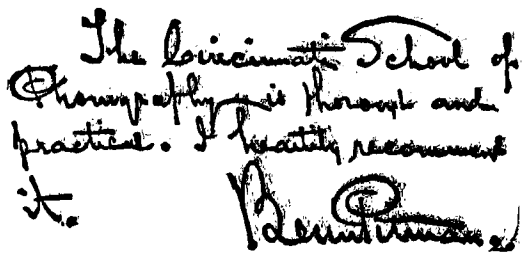 The Cincinnati School of
Phonography is thorough and
practical. I heartily recommend
it. Benn Pitman.